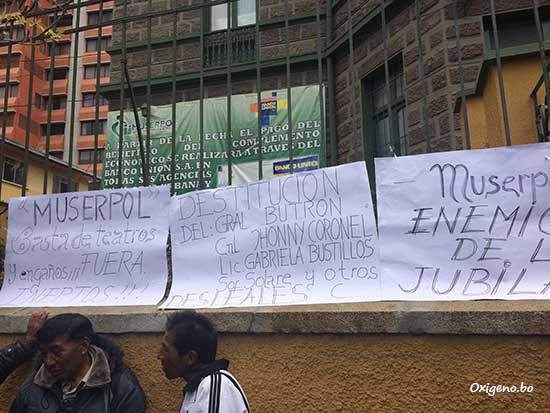 MUSERPOL
A PARTIR DE LA FECHA EL PAGO DEL
BENEFICIO DEL COMPLEMENTO
ECONOMICO SE REALIZARA A TRAVES DEL
BANCO UNION S.A. EN
TODAS SUS AGENCIAS
BANCO UNION
"MUSERPOL"
Basta de teatros
y engaños!!! FUERA
INEPTOS !!!!
DESTITUCIÓN
DEL: GRAL BUTRON
Cnl. JHONNY CORONEL
Lic GABRIELA BUSTILLOS
Sof Solare y otros
DESLEALES
Muserpol
ENEMIGO
DE L
JUBILA
Oxigeno.bo